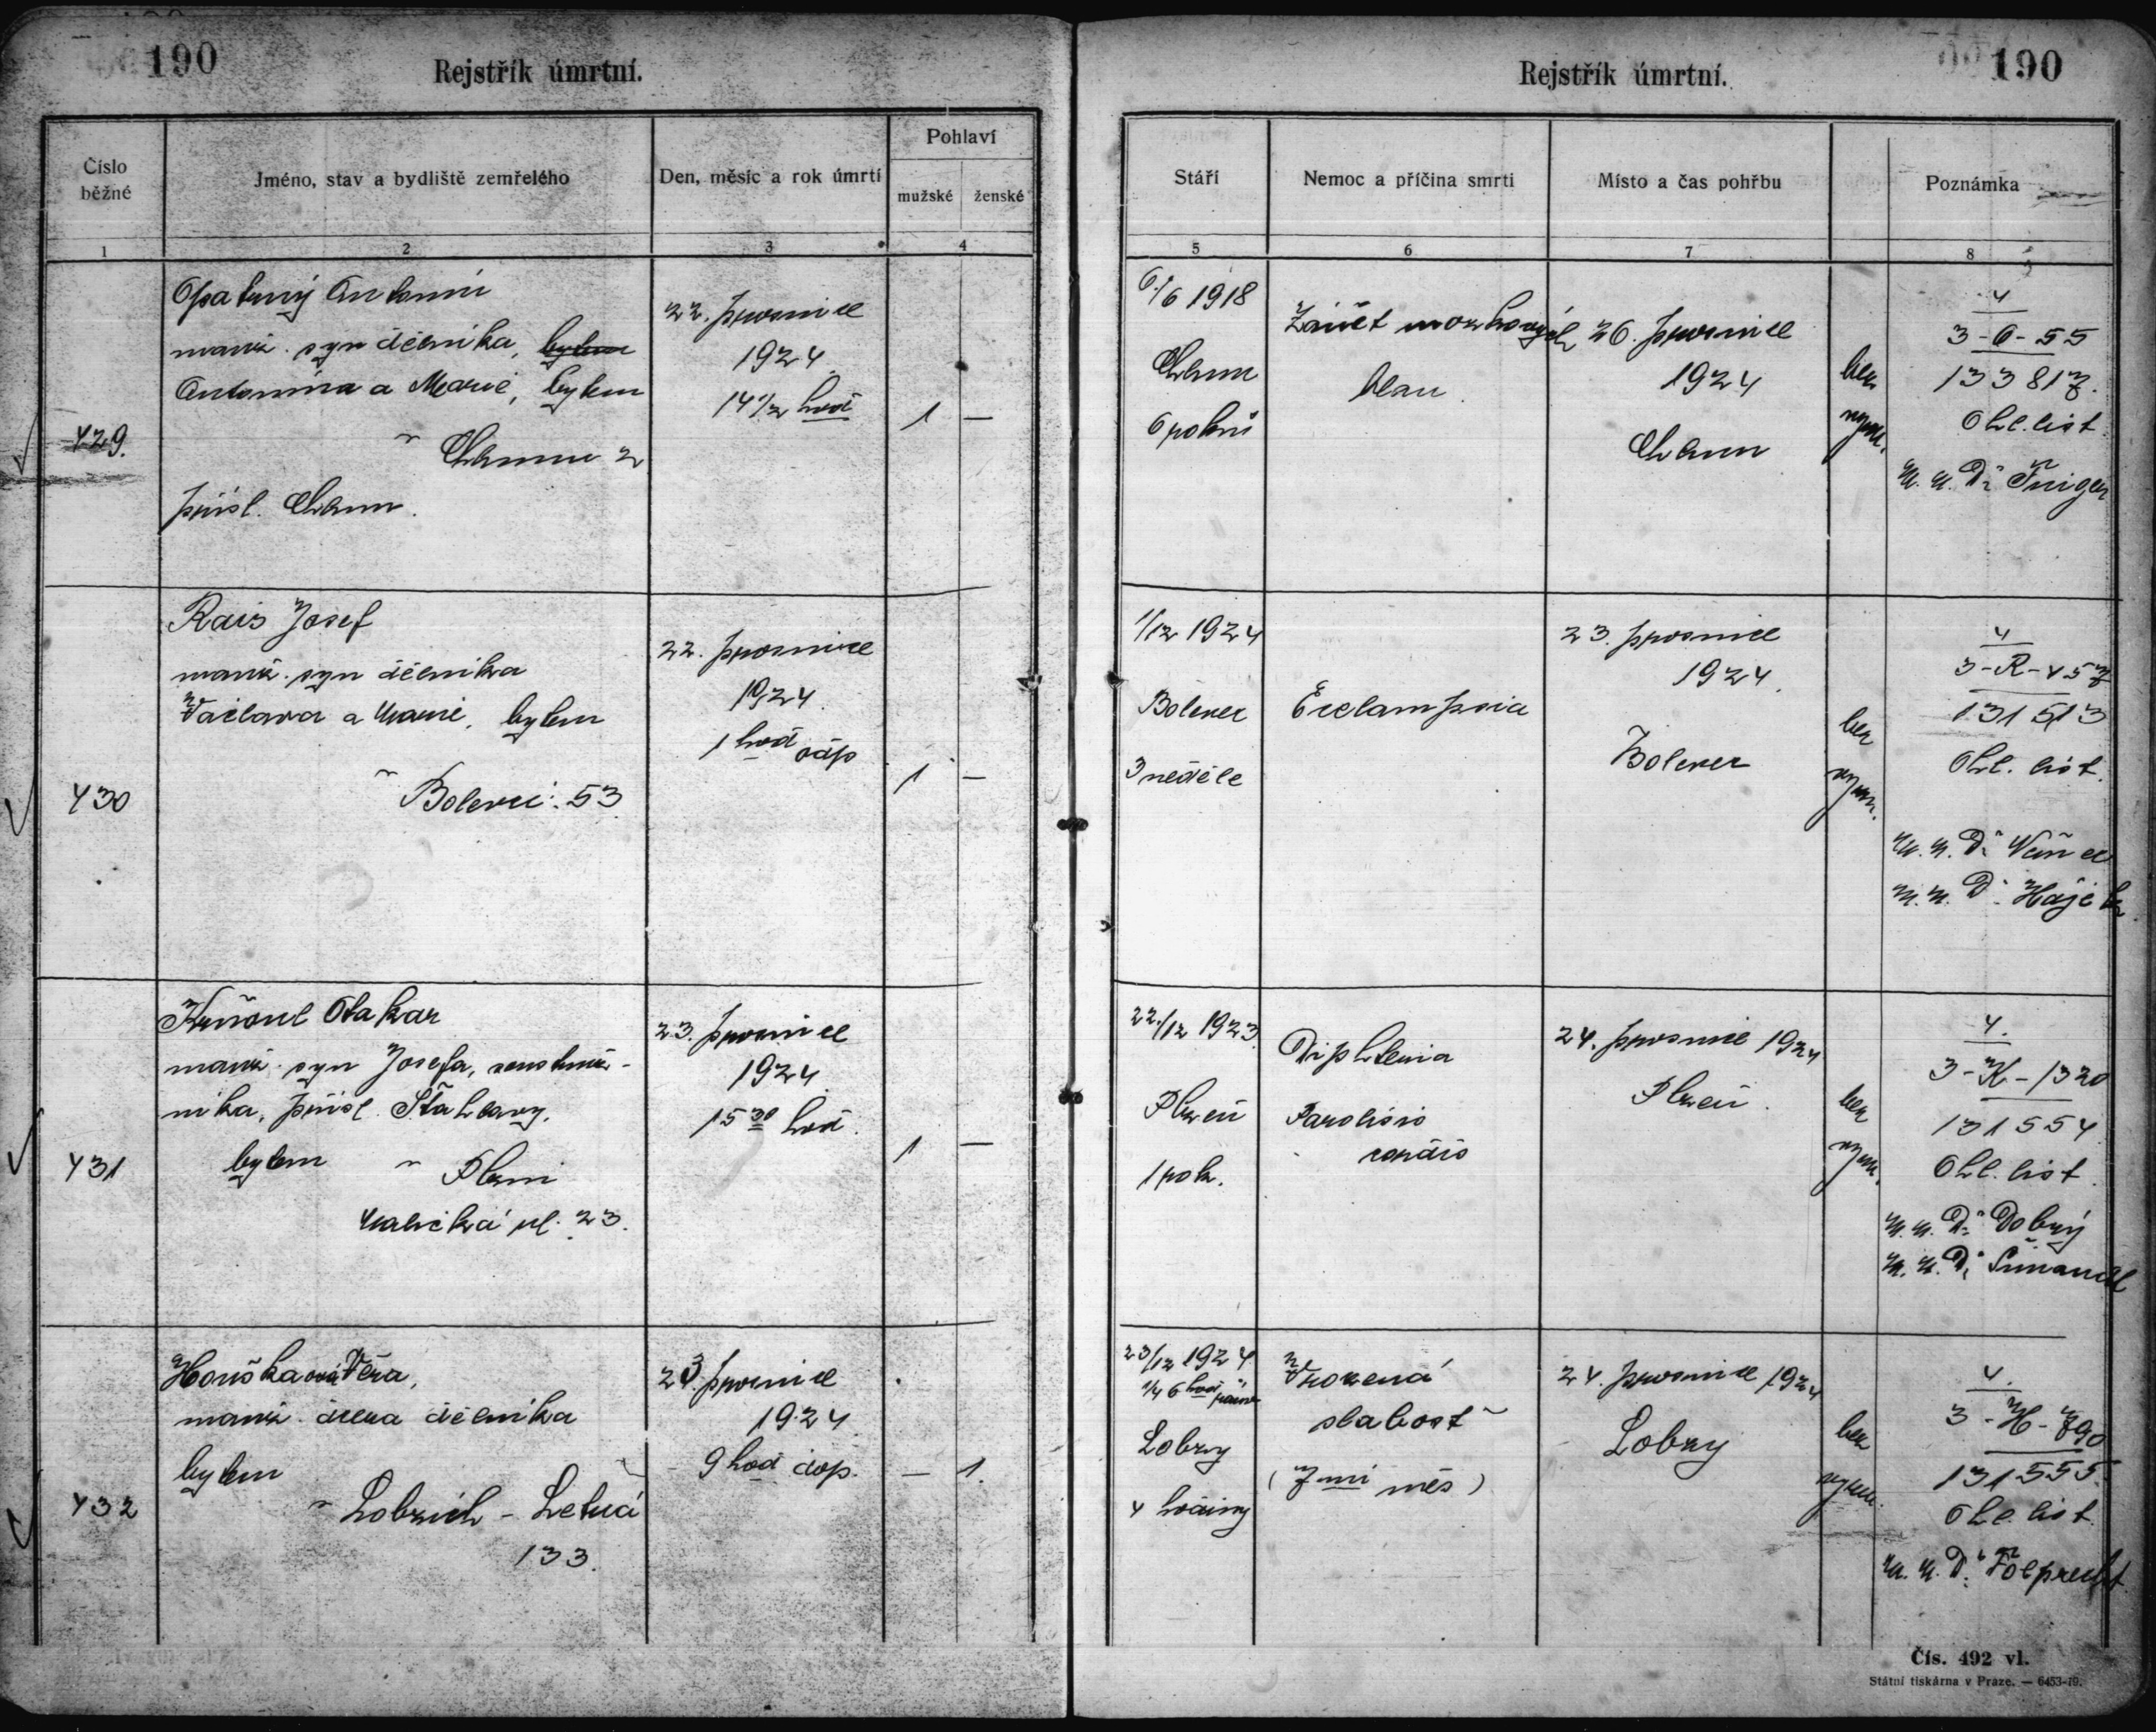 190
Rejstřík úmrtní.
Číslo běžné
Jméno, stav a bydliště zemřelého
Den, měsíc a rok úmrtí
Pohlaví
mužské
ženské
1
2
3
4
429.
Opatrný Antonín
manž. syn dělníka, bytem
Antonína a Marie, bytem
v Chanu 2
přísl. Chanu.
22. prosince
1924
14 1/2 hod
1 —
430
Rais Josef
manž. syn dělníka
Václava a Marie, bytem
v Bolevci 53
22. prosince
1924.
1 hod odp
1 —
431
Otakar
manž. syn Josefa, soustruž-
níka, přísl. Šťáhlavy,
bytem v Plzni
ul. 23.
23. prosince
1924
15 30 hod.
1 —
432
Houšková Věra,
manž. dcera dělníka
bytem
v Lobzích - Letná
133.
23. prosince
1924
9 hod dop.
— 1.
Rejstřík úmrtní.
190
Stáří
Nemoc a příčina smrti
Místo a čas pohřbu
Poznámka
5
6
7
8
6/6 1918
6 roků
Zánět mozkových
blan
26. prosince
1924
bez
4
3-O-55
133817.
Ohl. list.
M. U. Dr.
1/12 1924
Bolevec
3 neděle
Eclampsia
23. prosince
1924.
Bolevec
bez
4
3-R-457
131513
Ohl. list.
M. U. Dr.
M. U. Dr. Hájek
22./12 1923
Plzeň
1 rok.
Diphteria
Paralisis
cordis
24. prosince 1924
Plzeň.
bez
4.
3-K-1320
131554
Ohl. list.
M. U. Dr. Dobrý
M. U. Dr. Šimandl
23/12 1924
1/4 6 hod ráno
Lobzy
4 hodiny
Vrozená
slabost
(7 mi měs)
24. prosince 1924
Lobzy
bez
4.
3-H-790
131555.
Ohl. list.
M. U. Dr. Folprecht
Čís. 492 vl.
Státní tiskárna v Praze. — 6453-19.